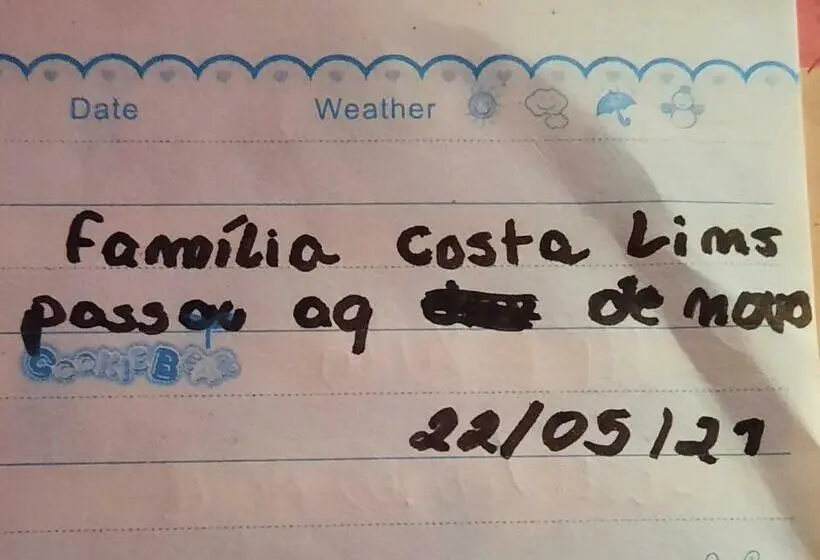 Date Weather
Família Costa Lims
passou aq de novo
CookieBear
22/05/21